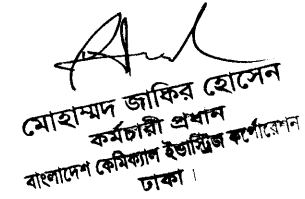 মোহাম্মদ জাকির হোসেন
কর্মচারী প্রধান
বাংলাদেশ কেমিক্যাল ইন্ডাস্ট্রিজ কর্পোরেশন
ঢাকা।